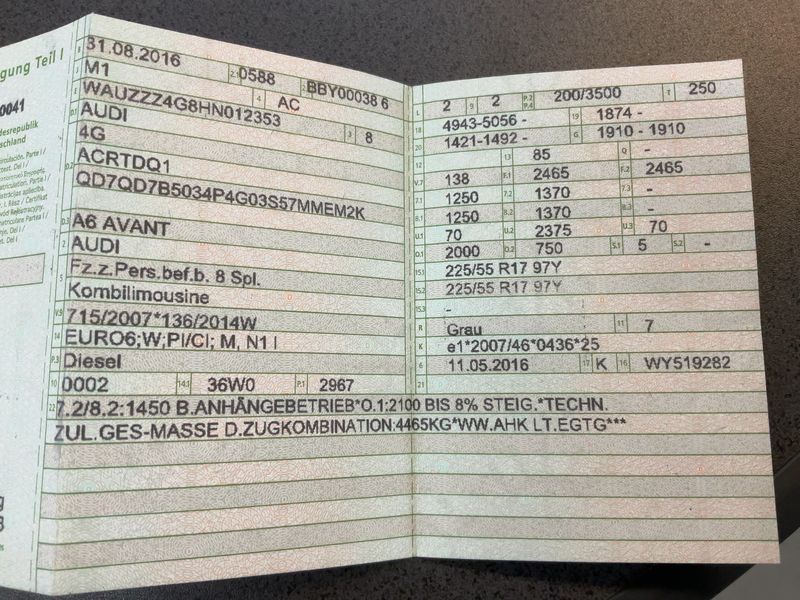 gung Teil I
0041
desrepublik
schland
g
3
B 31.08.2016 2.1 0588 2.2 BBY00038 6
J M1 4 AC
E WAUZZZ4G8HN012353
D.1 AUDI 3 8
4G
D.2 ACRTDQ1
QD7QD7B5034P4G03S57MMEM2K
D.3 A6 AVANT
2 AUDI
5 Fz.z.Pers.bef.b. 8 Spl.
Kombilimousine
V.9 715/2007*136/2014W
14 EURO6;W;PI/CI; M, N1 I
P.3 Diesel
10 0002 14.1 36W0 P.1 2967
L 2 9 2 P.2 P.4 200/3500 T 250
18 4943-5056 - 19 1874 -
20 1421-1492 - G 1910 - 1910
12 - 13 85 Q -
V.7 138 F.1 2465 F.2 2465
7.1 1250 7.2 1370 7.3 -
8.1 1250 8.2 1370 8.3 -
U.1 70 U.2 2375 U.3 70
O.1 2000 O.2 750 S.1 5 S.2 -
15.1 225/55 R17 97Y
15.2 225/55 R17 97Y
15.3 -
R Grau 11 7
K e1*2007/46*0436*25
6 11.05.2016 17 K 16 WY519282
21
22 7.2/8.2:1450 B.ANHÄNGEBETRIEB*O.1:2100 BIS 8% STEIG.*TECHN.
ZUL.GES-MASSE D.ZUGKOMBINATION:4465KG*WW.AHK LT.EGTG***